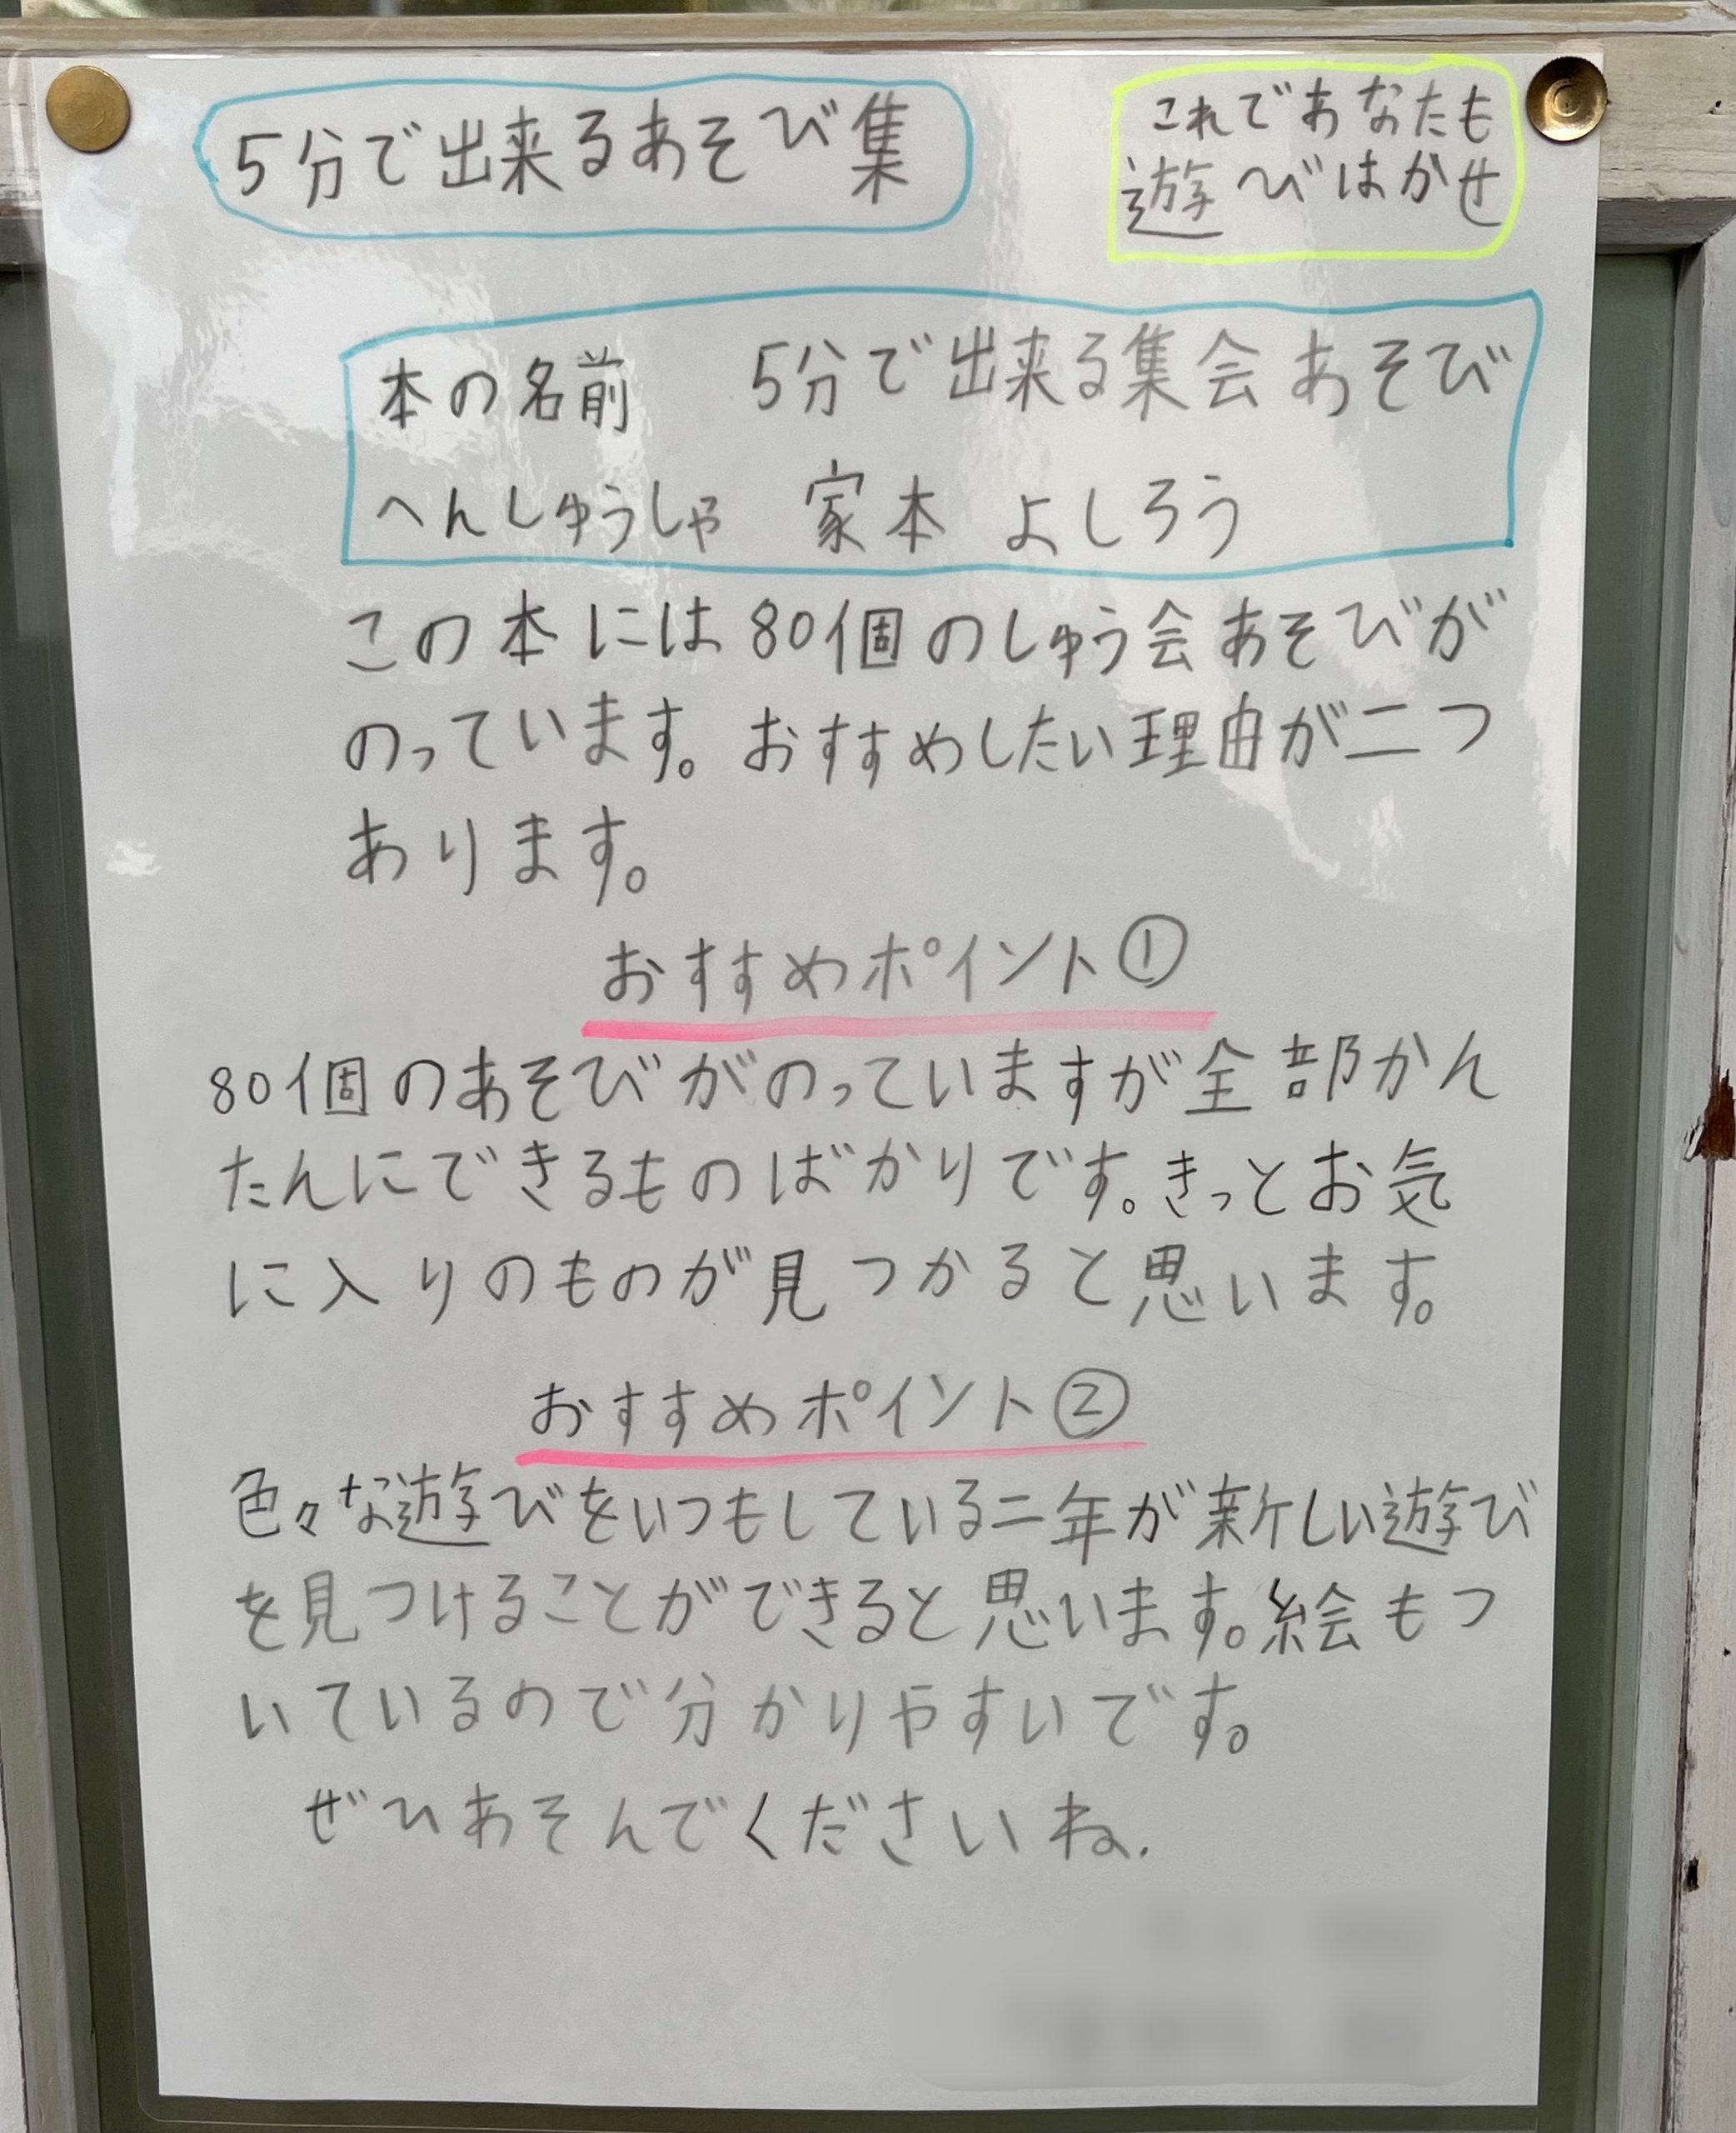 5分で出来るあそび集
これであなたも
遊びはかせ
本の名前　5分で出来る集会あそび
へんしゅうしゃ　家本　よしろう
この本には80個のしゅう会あそびが
のっています。おすすめしたい理由が二つ
あります。
おすすめポイント①
80個のあそびがのっていますが全部かん
たんにできるものばかりです。きっとお気
に入りのものが見つかると思います。
おすすめポイント②
色々な遊びをいつもしている二年が新しい遊び
を見つけることができると思います。絵もつ
いているので分かりやすいです。
ぜひあそんでくださいね.